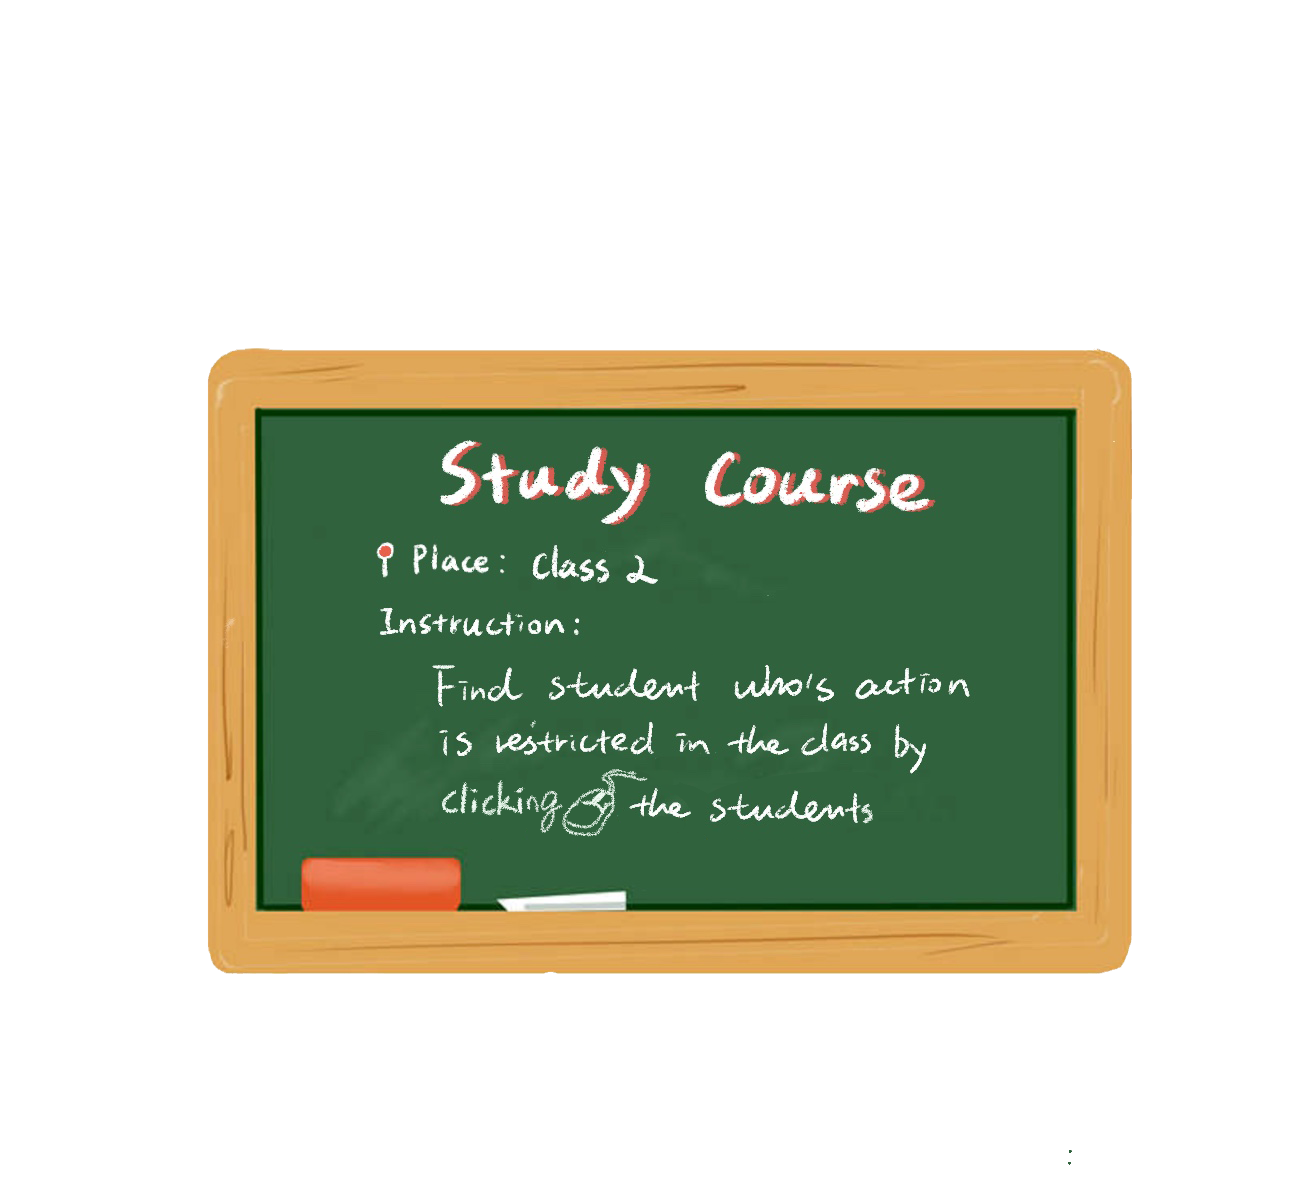 Study Course
Place: Class 2
Instruction:
Find student who's action
is restricted in the class by
clicking the students